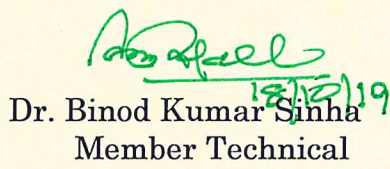 18/10/19
Dr. Binod Kumar Sinha
Member Technical